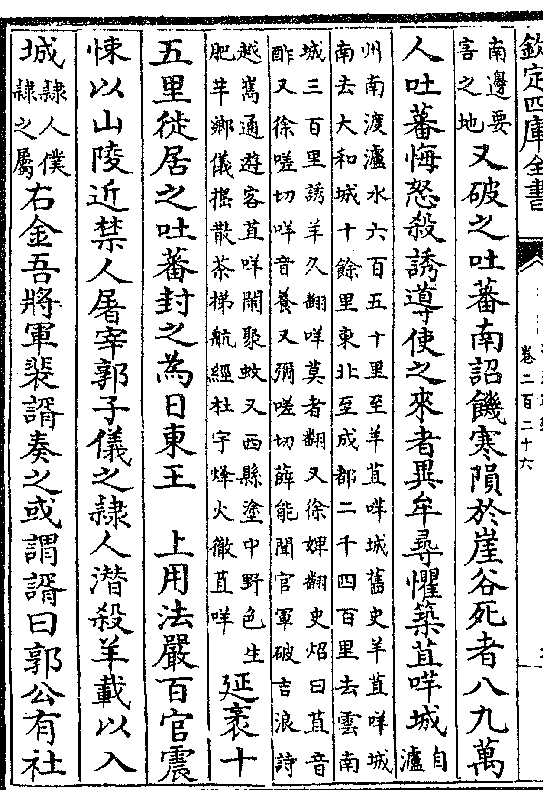 欽定四庫全書
卷二百二十六
南邊要
害之地
又破之吐蕃南詔饑寒隕於崖谷死者八九萬
人吐蕃悔怒殺誘導使之來者異牟尋懼築苴咩城
自
瀘
州南渡瀘水六百五十里至羊苴咩城舊史羊苴咩城
南去大和城十餘里東北至成都二千四百里去雲南
城三百里誘羊久翻咩莫者翻又徐婢翻史炤曰苴音
酢又徐嗟切咩音養又彌嗟切薛能聞官軍破吉浪詩
越嶲通遊客苴咩閙聚蚊又西縣塗中野色生
肥芉鄉儀搗散茶梯航經杜宇烽火徹苴咩
延袤十
五里徙居之吐蕃封之為日東王　上用法嚴百官震
悚以山陵近禁人屠宰郭子儀之隸人潛殺羊載以入
城
隸人僕
隸之屬
右金吾將軍裴諝奏之或謂諝曰郭公有社